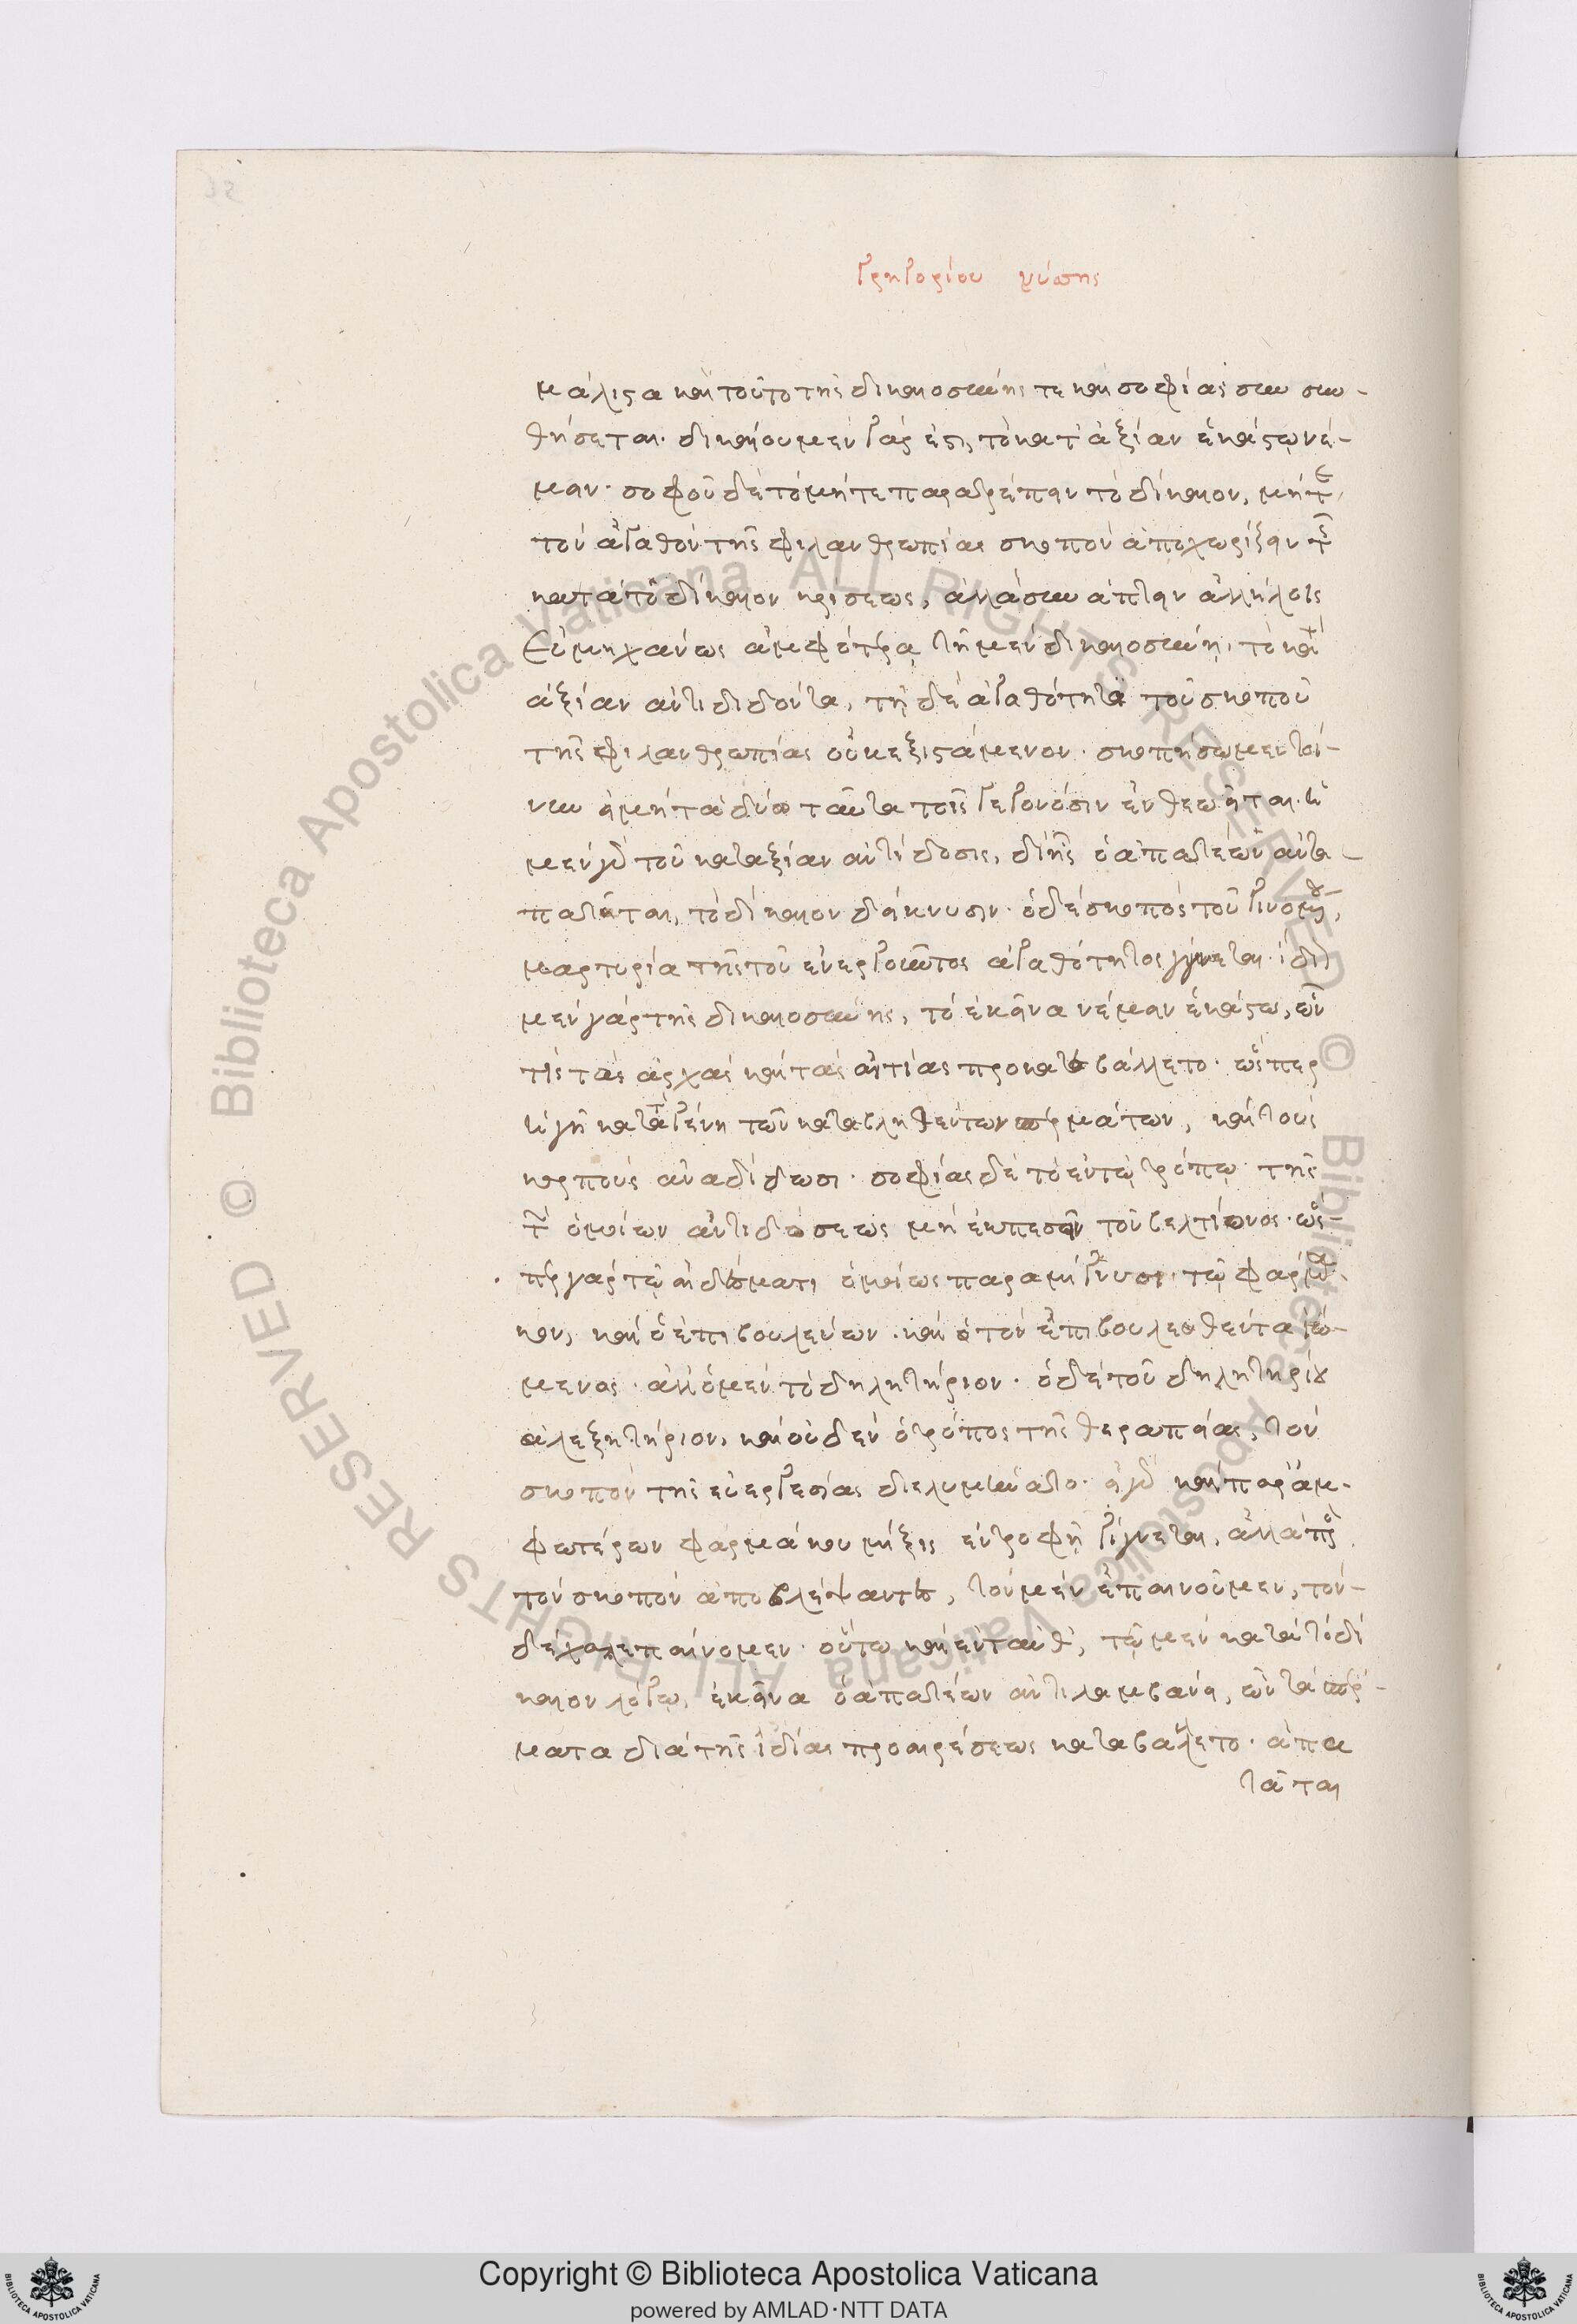 Γρηγορίου νύσης
μάλιστα καὶ τοῦτο τῆς δικαιοσύνης τε καὶ σοφίας συν συν-
θήσεται. δικαίου μὲν γάρ ἐστι, τὸ κατ' ἀξίαν ἑκάστῳ νέ-
μειν. σοφοῦ δὲ τὸ μήτε παρατρέπειν τὸ δίκαιον, μήτε
τοῦ ἀγαθοῦ τῆς φιλανθρωπίας σκοποῦ ἀποχωρίζειν τὴν
κατὰ τὸ δίκαιον κρίσεως, ἀλλὰ συνάπτειν ἀλλήλοις
εὐμηχάνως ἀμφότερα, τῇ μὲν δικαιοσύνῃ, τὸ κατ'
ἀξίαν ἀντιδιδόντα, τῇ δὲ ἀγαθότητα τοῦ σκοποῦ
τῆς φιλανθρωπίας οὐκ ἐξιστάμενον. σκοπήσωμεν τοί-
νυν εἰ μὴ τὰ δύο ταῦτα τοῖς γεγονόσιν ἐνθεωρεῖται. ἡ
μὲν γὰρ τοῦ κατ' ἀξίαν ἀντίδοσις, δι' ἧς ὁ ἀπατεὼν ἀντα-
πατᾶται, τὸ δίκαιον δείκνυσιν. ὁ δὲ σκοπὸς τοῦ γινομένου,
μαρτυρία τῆς τοῦ ἐνεργοῦντος ἀγαθότητος γίνεται. ἴδιον
μὲν γὰρ τῆς δικαιοσύνης, τὸ ἐκεῖνα νέμειν ἑκάστῳ, ὧν
τις τὰς ἀρχὰς καὶ τὰς αἰτίας προκατεβάλλετο. ὥσπερ
ἡ γῆ κατὰ τὰ γένη τῶν καταβληθέντων σπερμάτων, καὶ τοὺς
καρποὺς ἀναδίδωσι. σοφίας δὲ τὸ ἐν τῷ τρόπῳ τῆς
τῶν ὁμοίων ἀντιδόσεως μὴ ἐκπεσεῖν τοῦ βελτίονος. ὥσ-
περ γὰρ τῷ ἐδέσματι ὁμοίως παραμίγνυσι τῷ φάρμα-
κον, καὶ ὁ ἐπιβουλεύων. καὶ ὁ τὸν ἐπιβουλευθέντα ἰώ-
μενος. ἀλλ' ὁ μὲν τὸ δηλητήριον. ὁ δὲ τοῦ δηλητηρίου
ἀλεξητήριον, καὶ οὐδὲν ὁ τρόπος τῆς θεραπείας, τὸν
σκοπὸν τῆς εὐεργεσίας διελυμήνατο. εἰ γὰρ καὶ παρ' ἀμ-
φοτέρων φαρμάκου μίξις ἐν τροφῇ γίγνεται, ἀλλὰ πρὸς
τὸν σκοπὸν ἀποβλέψαντες, τὸν μὲν ἐπαινοῦμεν, τὸν
δὲ χαλεπαίνομεν. οὕτω καὶ ἐνταῦθ', τῷ μὲν κατὰ τὸ δί
καιον λόγῳ, ἐκεῖνα ὁ ἀπατεὼν ἀντιλαμβάνει, ὧν τὰ σπέρ-
ματα διὰ τῆς ἰδίας προαιρέσεως κατεβάλετο. ἀπα
τᾶται